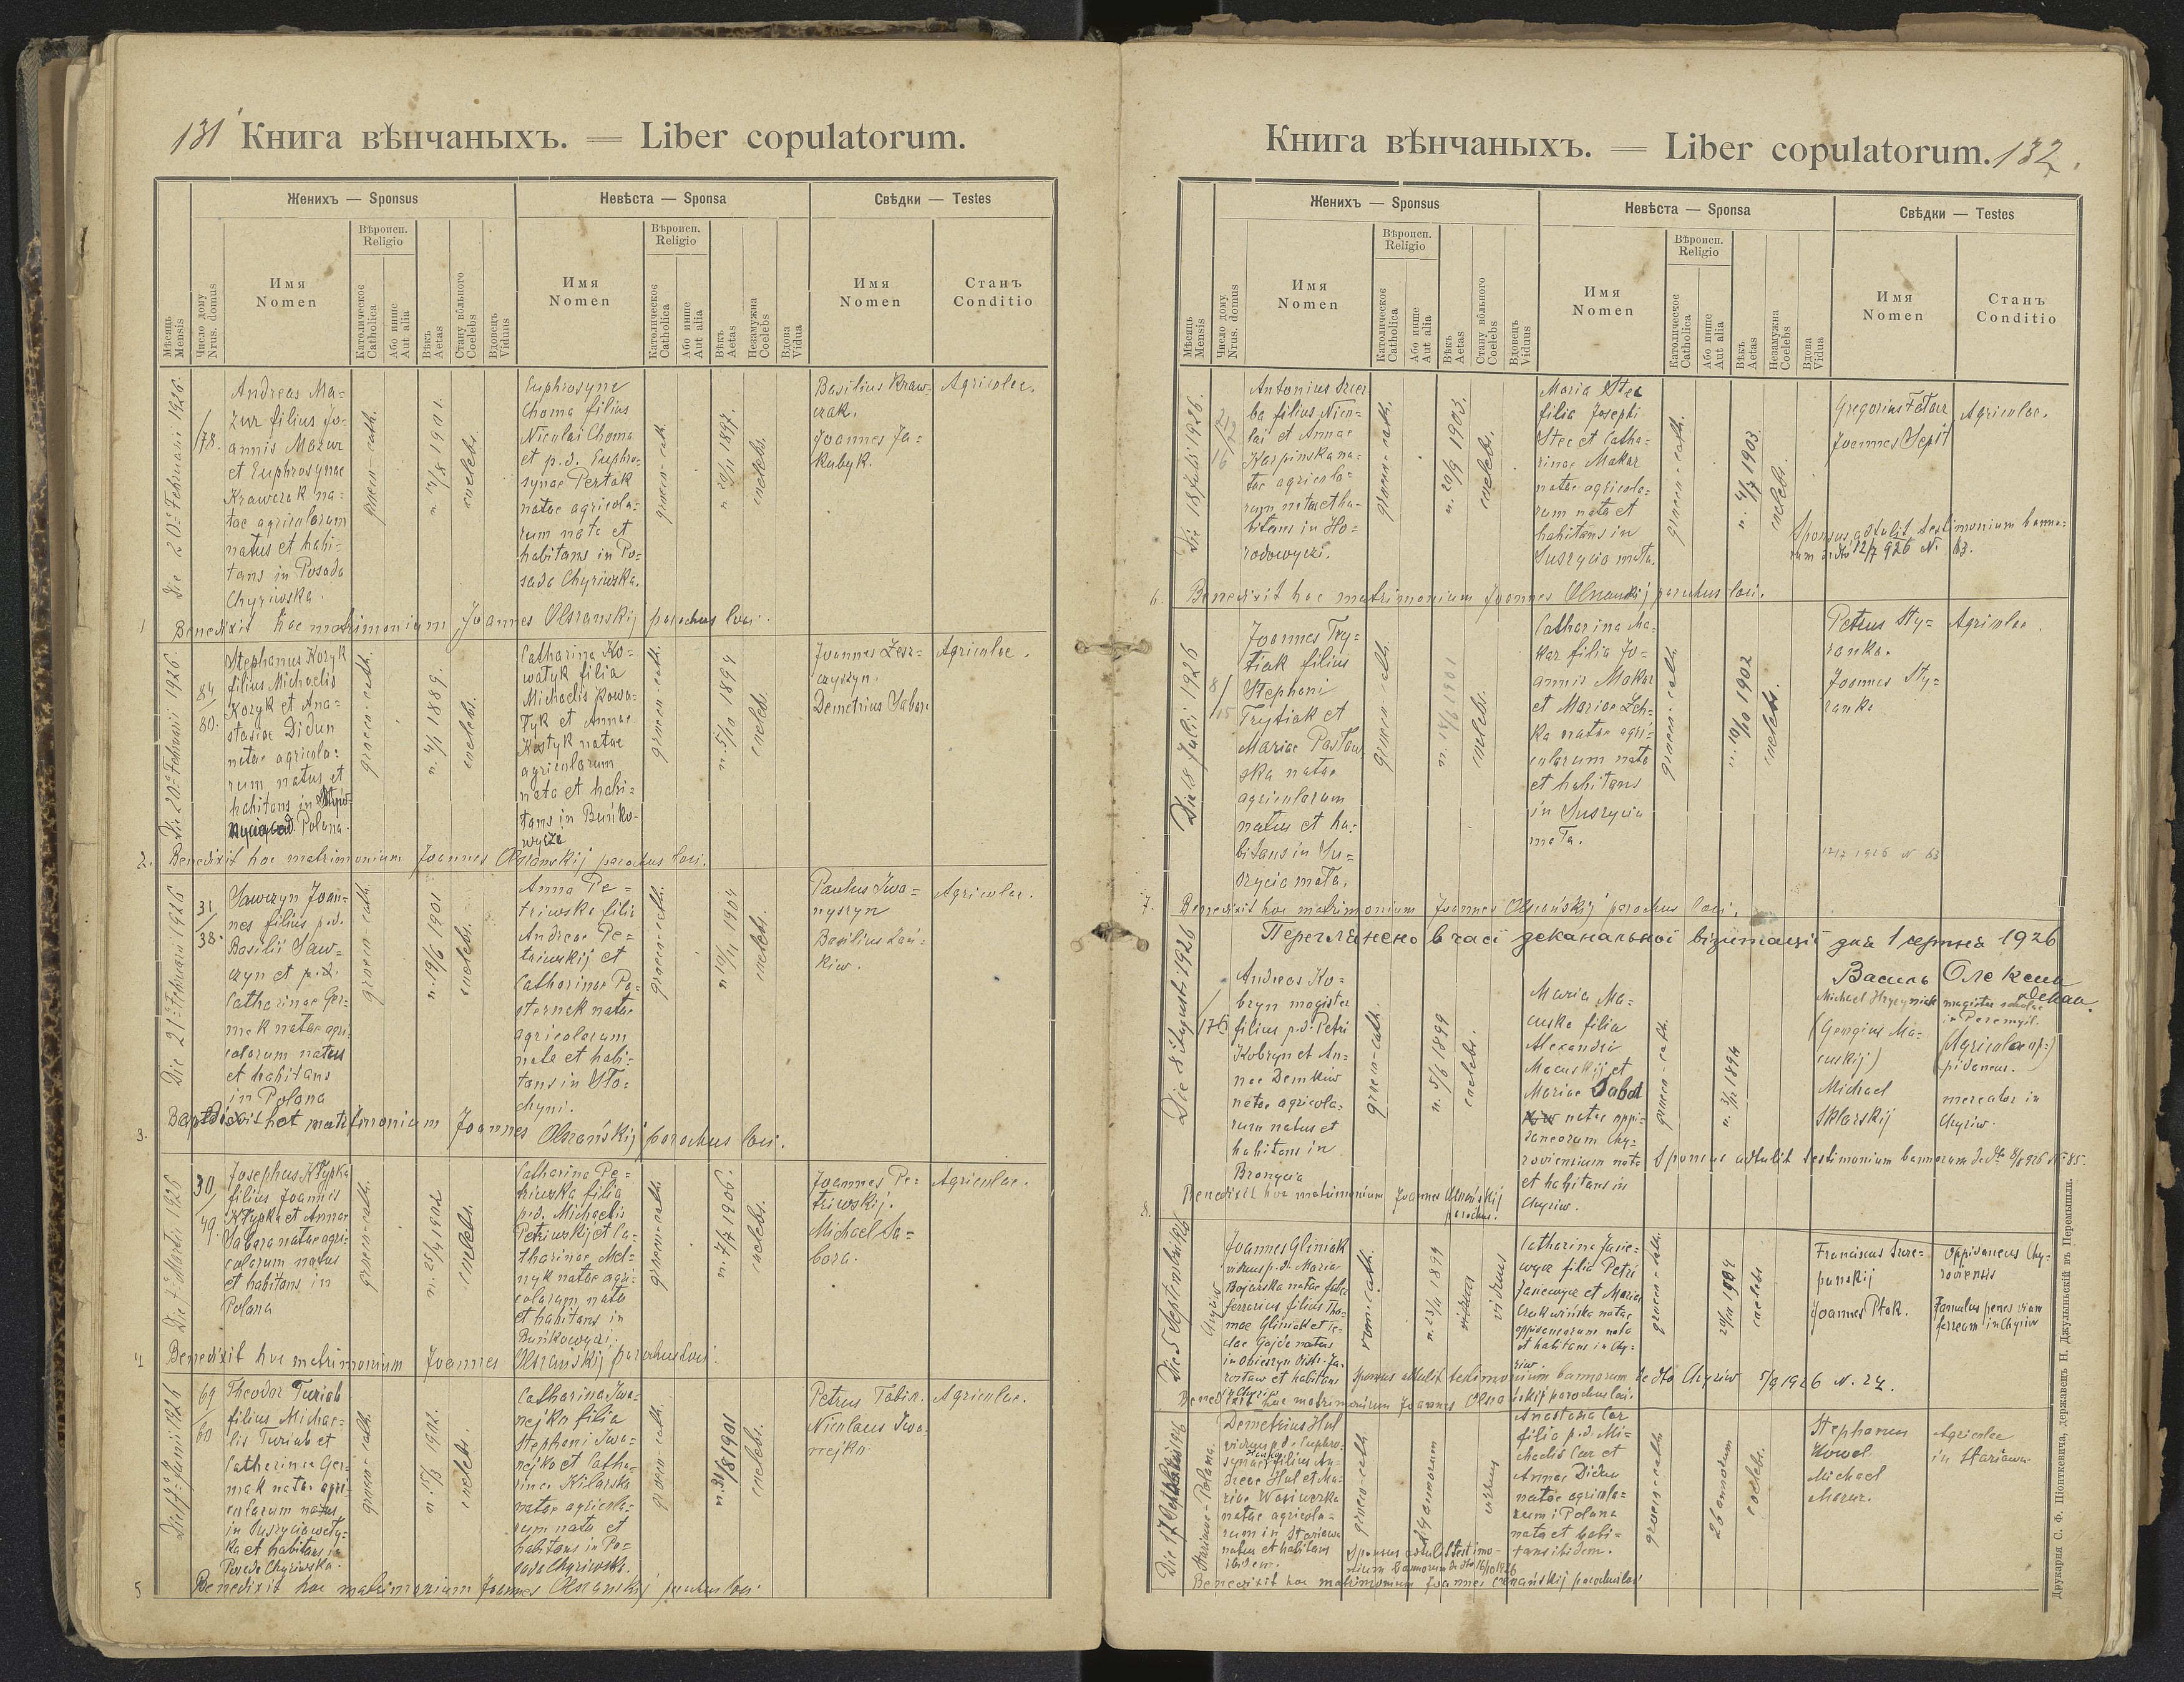 131
Книга вѣнчаныхъ. = Liber copulatorum.
Женихъ — Sponsus
Невѣста — Sponsa
Свѣдки — Testes
Мѣсяць
Mensis
Число дому
Nrus. domus
Имя
Nomen
Вѣроисп.
Religio
Католическое
Catholica
Або инше
Aut alia
Вѣкъ
Aetas
Стану вôльного
Coelebs
Вдовець
Viduus
Имя
Nomen
Вѣроисп.
Religio
Католическое
Catholica
Або инше
Aut alia
Вѣкъ
Aetas
Незамужна
Coelebs
Вдова
Vidua
Имя
Nomen
Станъ
Conditio
Die 20ª Februarii 1926
178.
Andreas Ma=
zur filius Jo=
annis Mazur
et Euphrosynae
Krawczak na=
tae agricolarum
natus et habi=
tans in Posada
Chyriwska.
graeco-cath.
1901.
coelebs.
Euphrosyne
Choma filius
Nicolai Choma
et p.d. Euphro=
synae Pertak
natae agricola=
rum nata et
habitans in Po=
sada Chyriwska.
graeco-cath.
n. 20/11 1897.
coelebs.
Basilius Kraw=
czak.
Joannes Ja=
kubyk.
Agricolae.
1
Benedixit hoc matrimonium Joannes Olszanskij parochus loci.
Die 20ª Februarii 1926.
84/
80.
Stephanus Kozyk
filius Michaelis
Kozyk et Ana=
stasiae Didun
natae agricola=
rum natus et
habitans in
Polana.
graeco-cath.
1889.
coelebs.
Catharina Ko=
watyk filia
Michaelis Kowa=
tyk et Annae
Kostyk natae
agricolarum
nata et habi=
tans in Buńko-
wyczi
graeco-cath.
n. 5/10 1894
coelebs.
Joannes
Demetrius Sabor.
Agricolae.
2.
Benedixit hoc matrimonium Joannes Olszanskij parochus loci.
Die 21ª Februarii 1926
31/
38.
Sawczyn Joan=
nes filius p.d.
Basilii Saw=
czyn et p.d.
Catharinae Ger=
mak natae agri=
colarum natus
et habitans
in Polana
graeco-cath.
n. 19/6 1901
coelebs.
Anna Pe=
triwska filia
Andreae Pe=
triwskij et
Catharinae Pa=
sternak natae
agricolarum
nata et habi=
tans in Sto=
chyni.
graeco-cath.
n 10/11 1904
coelebs.
Paulus Iwa=
nyszyn
Basilius Łań=
kiw.
Agricolae.
3.
matrimonium Joannes Olszańskij parochus loci.
Die 7ª Martii 1926
30/
49.
Josephus Kłypka
filius Joannis
Kłypka et Annae
Sabara natae agri=
colarum natus
et habitans in
Polana
graeco-cath.
n. 25/4 1902
coelebs.
Catharina Pe=
triwska filia
p.d. Michaelis
Petriwskij et Ca=
tharinae Mel=
nyk natae agri=
colarum nata
et habitans in
Buńkowyczi.
graeco-cath.
n. 7/7 1906.
coelebs.
Joannes Pe=
triwskij.
Michael Sa=
bora.
Agricolae.
4
Benedixit hoc matrimonium Joannes Olszańskij parochus loci.
Junii 1926
69/
60
Theodor Turiab
filius Michae=
lis Turiab et
Catharinae Ger=
mak natae agri=
colarum natus
in Suszycia wely=
ka et habitans in
Posada Chyriwska.
graeco-cath.
1902.
coelebs.
Catharina Iwa=
nejko filia
Stephani Iwa=
nejko et Catha=
rinae Kilarska
natae agricola=
rum nata et
habitans in Po=
sada Chyriwska.
graeco-cath.
n. 31/8 1901
coelebs.
Petrus Tabir.
Nicolaus Iwa=
nejko.
Agricolae.
5
Benedixit hoc matrimonium Joannes Olszanskij parochus loci
Книга вѣнчаныхъ. = Liber copulatorum.
132.
Женихъ — Sponsus
Невѣста — Sponsa
Свѣдки — Testes
Мѣсяць
Mensis
Число дому
Nrus. domus
Имя
Nomen
Вѣроисп.
Religio
Католическое
Catholica
Або инше
Aut alia
Вѣкъ
Aetas
Стану вôльного
Coelebs
Вдовець
Viduus
Имя
Nomen
Вѣроисп.
Religio
Католическое
Catholica
Або инше
Aut alia
Вѣкъ
Aetas
Незамужна
Coelebs
Вдова
Vidua
Имя
Nomen
Станъ
Conditio
Die 18 Julii 1926.
16
Antonius
ba filius Nico=
lai et Annae
Karpinska na=
tae agricola=
rum natus et ha=
bitans in Ho=
rodowyczi.
graeco-cath.
n. 20/9 1903.
coelebs.
Maria Stec
filia Josephi
Stec et Catha=
rinae Makar
natae agricola=
rum nata et
habitans in
Suszycia mała.
graeco-cath.
n. 4/7 1903
coelebs.
Gregorius Fatar
Joannes Septi
Agricolae.
Sponsus adtulit testimonium banno=
rum de dto 12/7 926 N. 63.
6.
Benedixit hoc matrimonium Joannes Olszanskij parochus loci.
Die 18 Julii 1926
8/
15
Joannes Try=
tiak filius
Stephani
Trytiak et
Mariae Pasław
ska natae
agricolarum
natus et ha=
bitans in Su=
szycia mała.
graeco-cath.
1901
coelebs.
Catharina Ma=
kar filia Jo=
annis Makar
et Mariae Łeh=
ka natae agri=
colarum nata
et habitans
in Suszycia
mała.
graeco-cath.
n. 10/10 1902
coelebs.
Petrus Sty=
ranka.
Joannes Sty=
ranka
Agricolae.
12/7 1926 N 63
7.
Benedixit hoc matrimonium Joannes Olszańskij parochus loci.
Переглянено в часі деканальної візитації дня 1 серпня 1926
Василь Олекшин
декан.
Die 8 Augusti 1926
/176
Andreas Ko=
bryn magister
filius p.d. Petri
Kobryn et An=
nae Demkiw
natae agricola=
rum natus et
habitans in
Brongcia
graeco-cath.
n. 5/6 1899
coelebs.
Maria Ma=
cuska filia
Alexandri
Macuskij et
Mariae Sabat
natae oppi=
daneorum Chy=
roviensium nata
et habitans in
Chyriw.
graeco-cath.
1894
Michael Hrycyniak
magister scholae
in Peremyśl.
(Georgius Ma=
cuskij)
(Agricola op=)
pidaneus.
Michael
Sklarskij
mercator in
Chyriw.
Sponsus adtulit testimonium bannorum de dto 8/8 926 N. 85.
8.
Benedixit hoc matrimonium Joannes Olszańskij
parochus.
Die 5 Septembris 1926
Chyriw
Joannes Gliniak
viduus p.d. Maria
Bojarska natae faber
ferrarius filius Tho=
mae Gliniak et Te=
clae Gajda natus
in Obieszyn distr. Ja=
rosław et habitans
in Chyriw
rom.cath.
n. 23/11 1899
viduus
Catharina Jasie=
wycz filia Petri
Janiewycz et Mariae
natae
oppidaneorum nata
et habitans in Chy=
riw.
graeco-cath.
coelebs
Franciscus Szcze=
panskij
Joannes Ptak.
Oppidaneus Chy=
roviensis
Famulus penes viam
ferream in Chyriw
Sponsus adtulit testimonium bannorum de dto Chyriw 5/9 1926 N. 24.
Benedixit hoc matrimonium Joannes Olszańskij parochus loci.
Stariawa - Polana.
Demetrius Hul
viduus p.d. Euphro=
synae filius An=
dreae Hul et Ma=
riae
natae agricola=
rum in Stariawa
natus et habitans
ibidem.
graeco-cath.
annorum
viduus
Anastasia Car
filia p.d. Mi=
chaelis Car et
Annae Didun
natae agricola=
rum i Polana
nata et habi=
tans ibidem.
graeco-cath.
26 annorum
coelebs.
Stephanus
Kowal
Michael
Mazur.
Agricolae
in Stariawa
Sponsus adtulit testimo=
nium bannorum de dto 16/10 1926
Benedixit hoc matrimonium Joannes Olszańskij parochus loci
Друкарня С. Ф. Піонткевича, державець Н. Джулыньскій въ Перемышли.